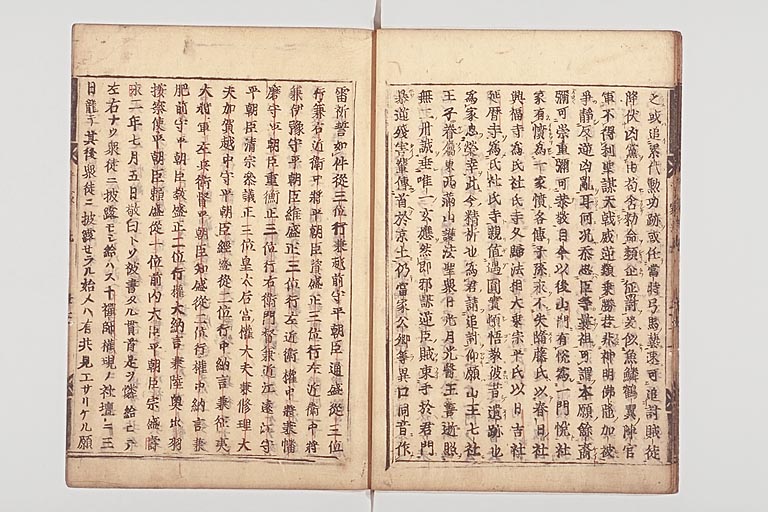 之或追累代勲功跡或任當時弓馬藝速可追討賊徒
降伏凶黨由苟含勅命頻企征討爰似魚鱗鶴翼陣官
軍不得利星謀天戟威逆類乗勝若非神明佛陀加被
争静反逆凶亂耳何况忝思臣等曩祖可謂本願餘裔
彌可崇重彌可恭敬自今以後山門有悦為一門悦社
家有憤為一家憤各傳子孫永不失墜藤氏以春日社
興福寺為氏社氏寺久歸法相大乗宗平氏以日吉社
延暦寺為氏社氏寺親値遇圓實頓悟教彼昔遺跡也
為家思榮幸此今精祈也為君請追討仰願山王七社
王子眷属東西満山護法聖衆日光月光醫王善逝照
無二丹誠垂唯一玄應然即邪謀逆臣賊束手於君門
暴逆残害輩傳首於京土仍當家公卿等異口同音作
雷祈誓如件從三位行兼越前守平朝臣通盛從三位
行兼右近衛中将平朝臣資盛正三位行左近衛中将
兼伊豫守平朝臣維盛正三位行左近衛權中将兼播
磨守平朝臣重衡正三位行右衛門督兼近江遠江守
平朝臣清宗参議正三位皇太后宮權大夫兼修理大
夫加賀越中守平朝臣經盛從二位行中納言兼征夷
大将軍左兵衛督平朝臣知盛從二位行權中納言兼
肥前守平朝臣教盛正二位行權大納言兼陸奥出羽
按察使平朝臣頼盛從一位前内大臣平朝臣宗盛壽
永二年七月五日敬白トソ被書タル貫首是ヲ憐給ヒテ
左右ナウ衆徒ニ披露モシ給ハス十禪師權現ノ社壇ニ三
日籠テ其後衆徒ニ披露セラル始ハ有共見エサリケル願